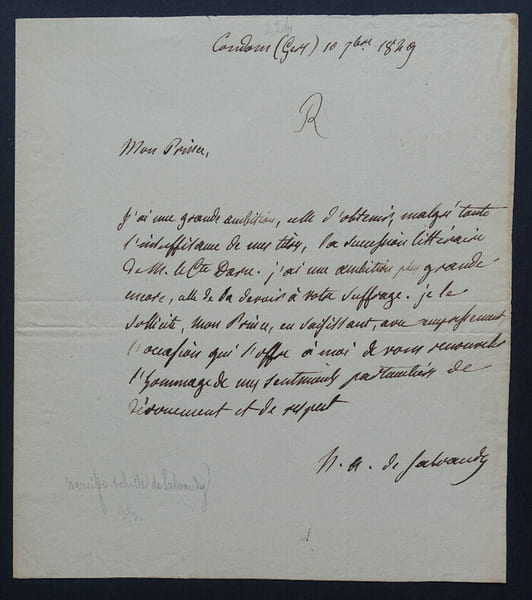 Condom (Gers) 10 7bre 1829
R
Mon Prince,
J'ai une grande ambition, celle d'obtenir, malgré toute
l'insuffisance de mes titres, la succession littéraire
de M. le Cte Daru. j'ai une ambition plus grande
encore, celle de la devoir à votre suffrage. je le
sollicite, mon Prince, en saisissant, avec empressement,
l'occasion qui s'offre à moi de vous renouveler
l'hommage de mes sentiments particuliers de
dévouement et de respect
N. A. de Salvandy
narcisse achille de Salvandy